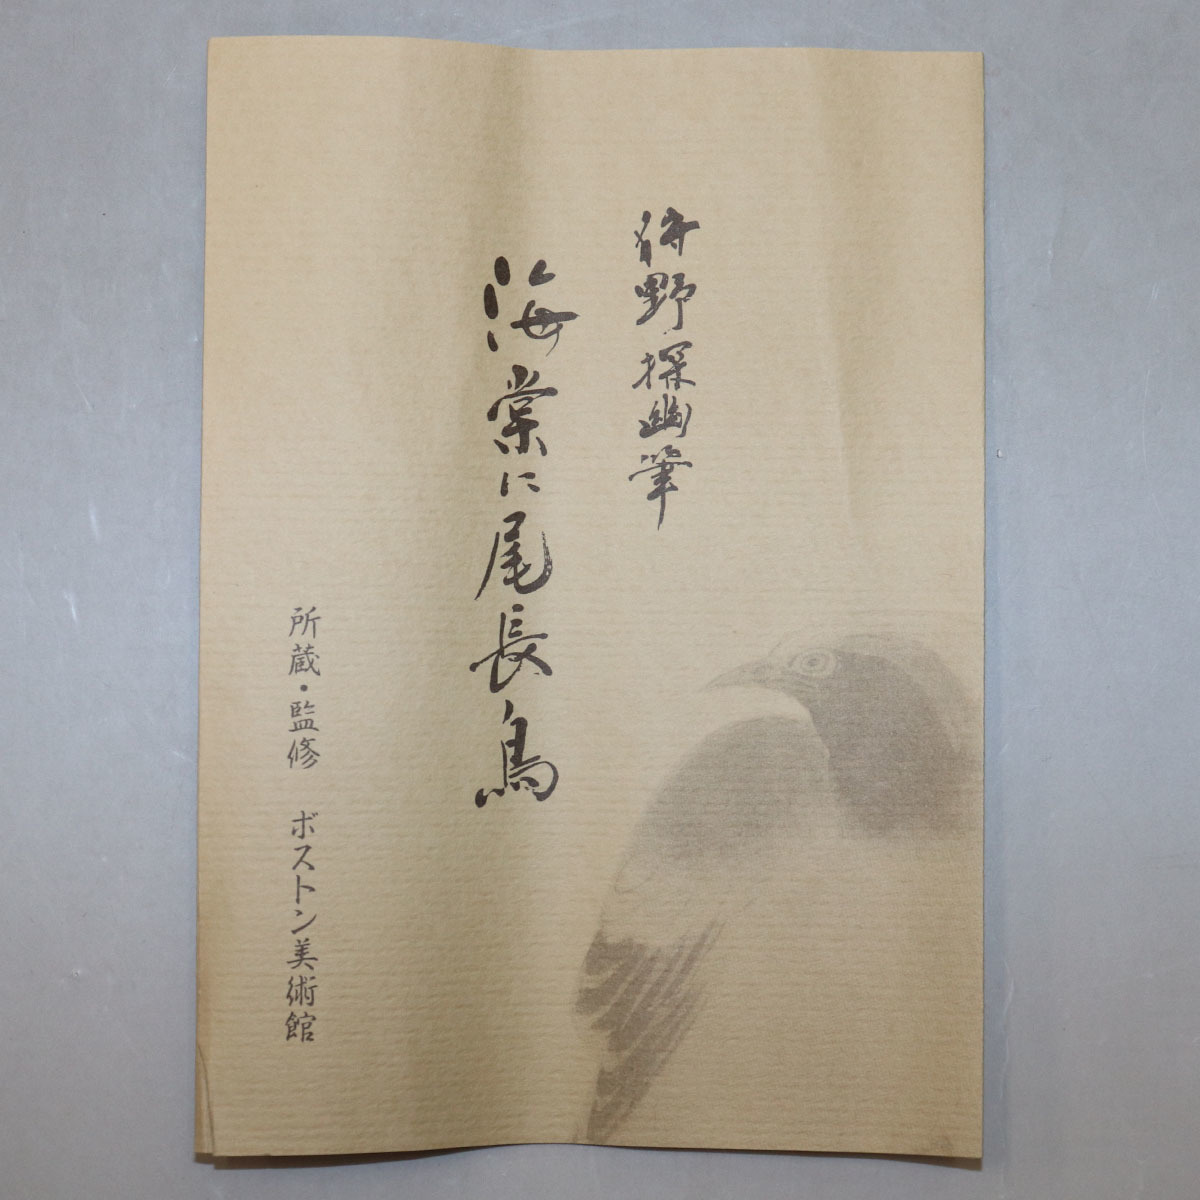 狩野探幽筆
海棠に尾長鳥
所蔵・監修　ボストン美術館